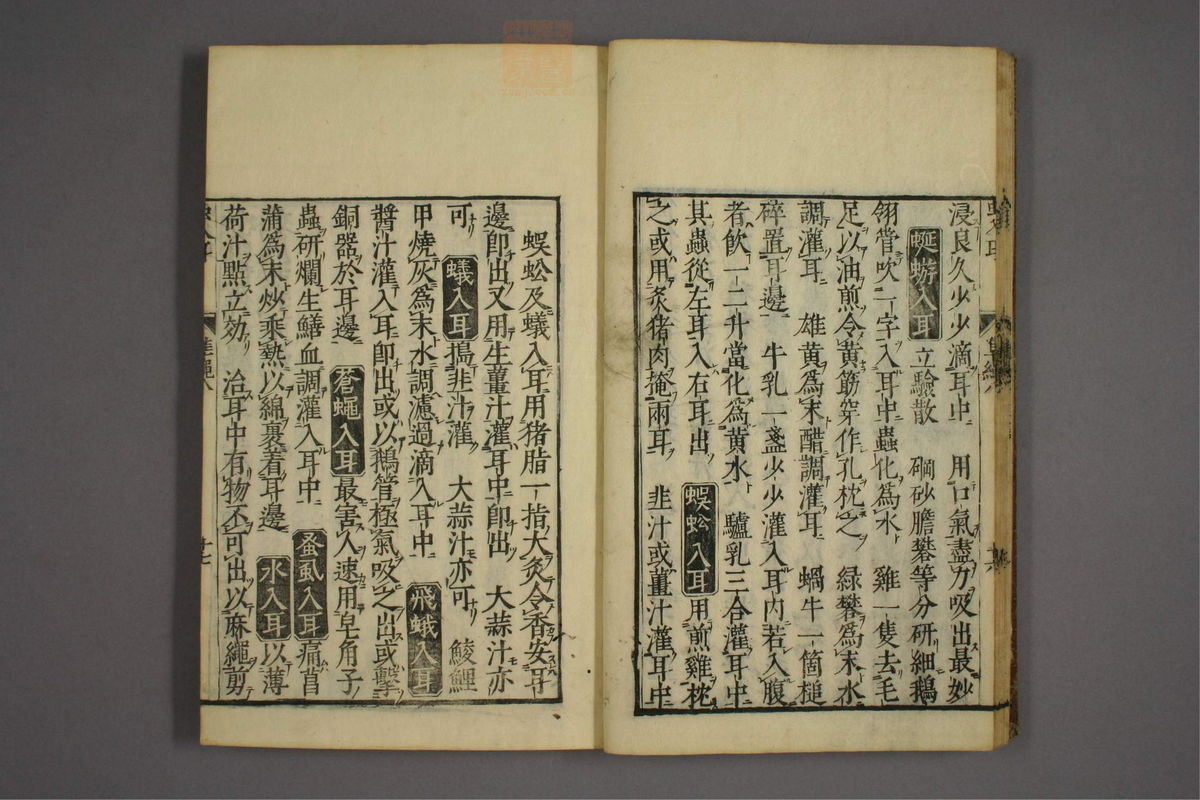 浸良久少少滴耳中　用口氣盡力吸出最妙
蜒蝣入耳　立驗散　碙砂膽礬等分研細鵝
翎管吹一字入耳中蟲化爲水　雞一隻去毛
足以油煎令黃筯穿作孔枕之　綠礬爲末水
調灌耳　雄黃爲末醋調灌耳　蝸牛一箇槌
碎置耳邊　牛乳一盞少少灌入耳內若入腹
者飲一二升當化爲黃水　驢乳三合灌耳中
其蟲從左耳入右耳出　蜈蚣入耳　用煎雞枕
之或用炙猪肉掩兩耳　韭汁或薑汁灌耳中
蜈蚣及蟻入耳用猪脂一指大炙令香安耳
邊卽出又用生薑汁灌耳中卽出　大蒜汁亦
可　蟻入耳　搗韭汁灌　大蒜汁亦可　鯪鯉
甲燒灰爲末水調濾過滴入耳中　飛蛾入耳
醬汁灌入耳卽出或以鵝管極氣吸之出或擊
銅器於耳邊　蒼蠅入耳　最害人速用皂角子
蟲研爛生鱔血調灌入耳中　蚤虱入耳　痛菖
蒲爲末炒乘熱以綿裹着耳邊　水入耳　以薄
荷汁點立効　治耳中有物不可出以麻繩剪